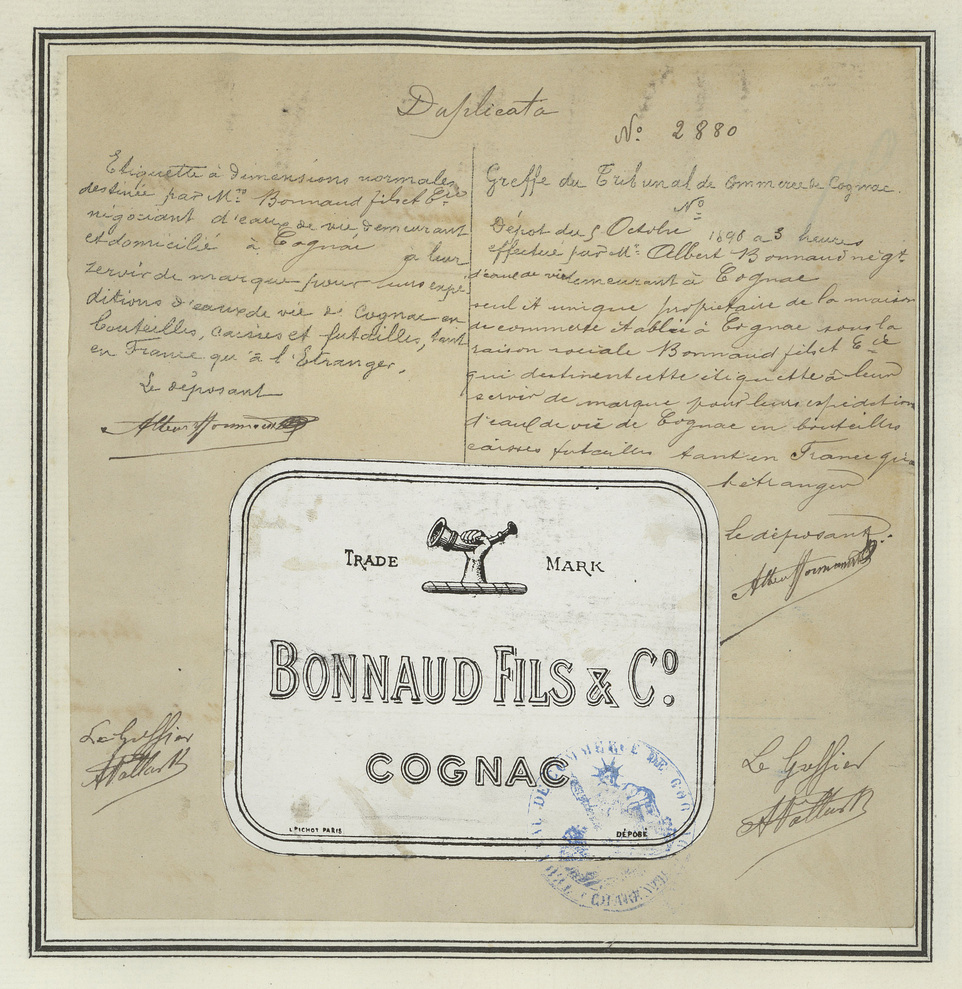 Duplicata
Nº 2880
Etiquette à dimensions normales
destinée par Mrs Bonnaud fils et Cie
négociant d'eaux de vie demeurant
et domicilié à Cognac à leur
servir de marque pour leurs expé
ditions d'eaux de vie de Cognac en
bouteilles, caisses et futailles, tant
en France qu'à l'Etranger.
Le déposant
Greffe du Tribunal de Commerce de Cognac.
Nº
Dépôt du 5 Octobre 1896 a 3 heures
effectué par Mr Albert Bonnaud négt
d'eau de vie demeurant à Cognac
seul et unique propriétaire de la maison
de commerce établie à Cognac sous la
raison sociale Bonnaud fils et Cie
qui destinent cette étiquette à leur
servir de marque pour leurs expédition
d'eau de vie de Cognac en bouteilles
caisses futailles tant en France qu'a
l'étranger
le déposant
TRADE MARK
BONNAUD FILS & Cº
COGNAC
L. PICHOT PARIS
DÉPOSÉ
DE COMMERCE DE COGNAC
CHARENTE
Le Greffier
Le Greffier